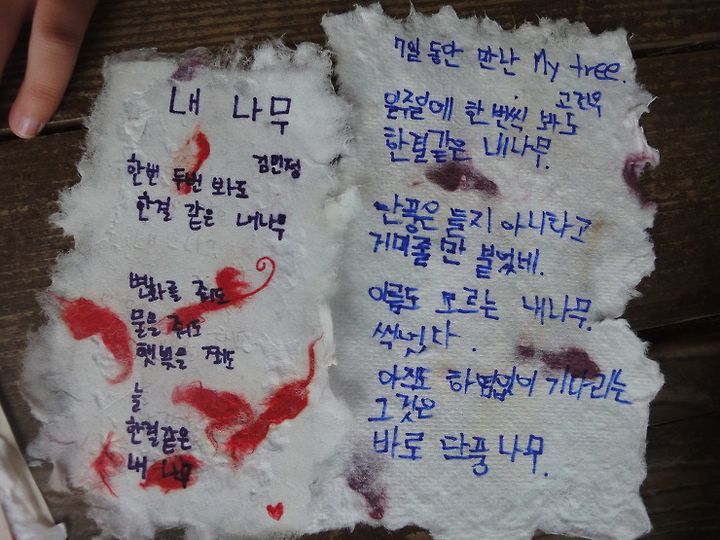 내 나무
김민정
한번 두번 봐도
한결 같은 내나무
변화를 줘도
물을 줘도
햇빛을 줘도
늘
한결같은
내 나무
7일 동안 만난 My tree.
고건우
일주일에 한 번씩 봐도
한결같은 내나무.
단풍은 들지 아니하고
거미줄만 붙었네.
이름도 모르는 내나무.
썩었다.
아직도 하염없이 기다리는
그것은
바로 단풍나무.